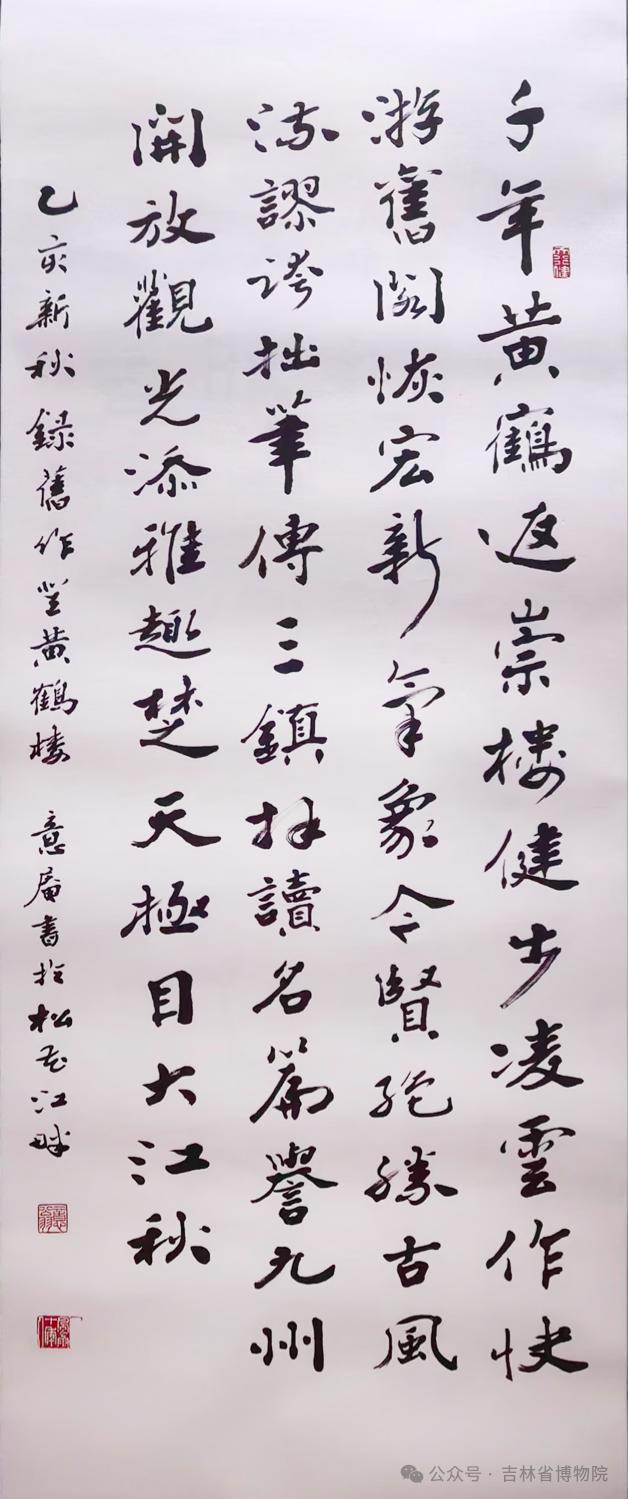 千年黄鶴返崇楼健步凌雲作快
游舊閣恢宏新氣象今賢絶勝古風
流謬誇拙筆傳三鎮拜讀名篇譽九州
開放觀光添雅趣楚天極目大江秋
乙亥新秋録舊作登黄鶴楼 意庵書於松花江畔
公众号 · 吉林省博物院